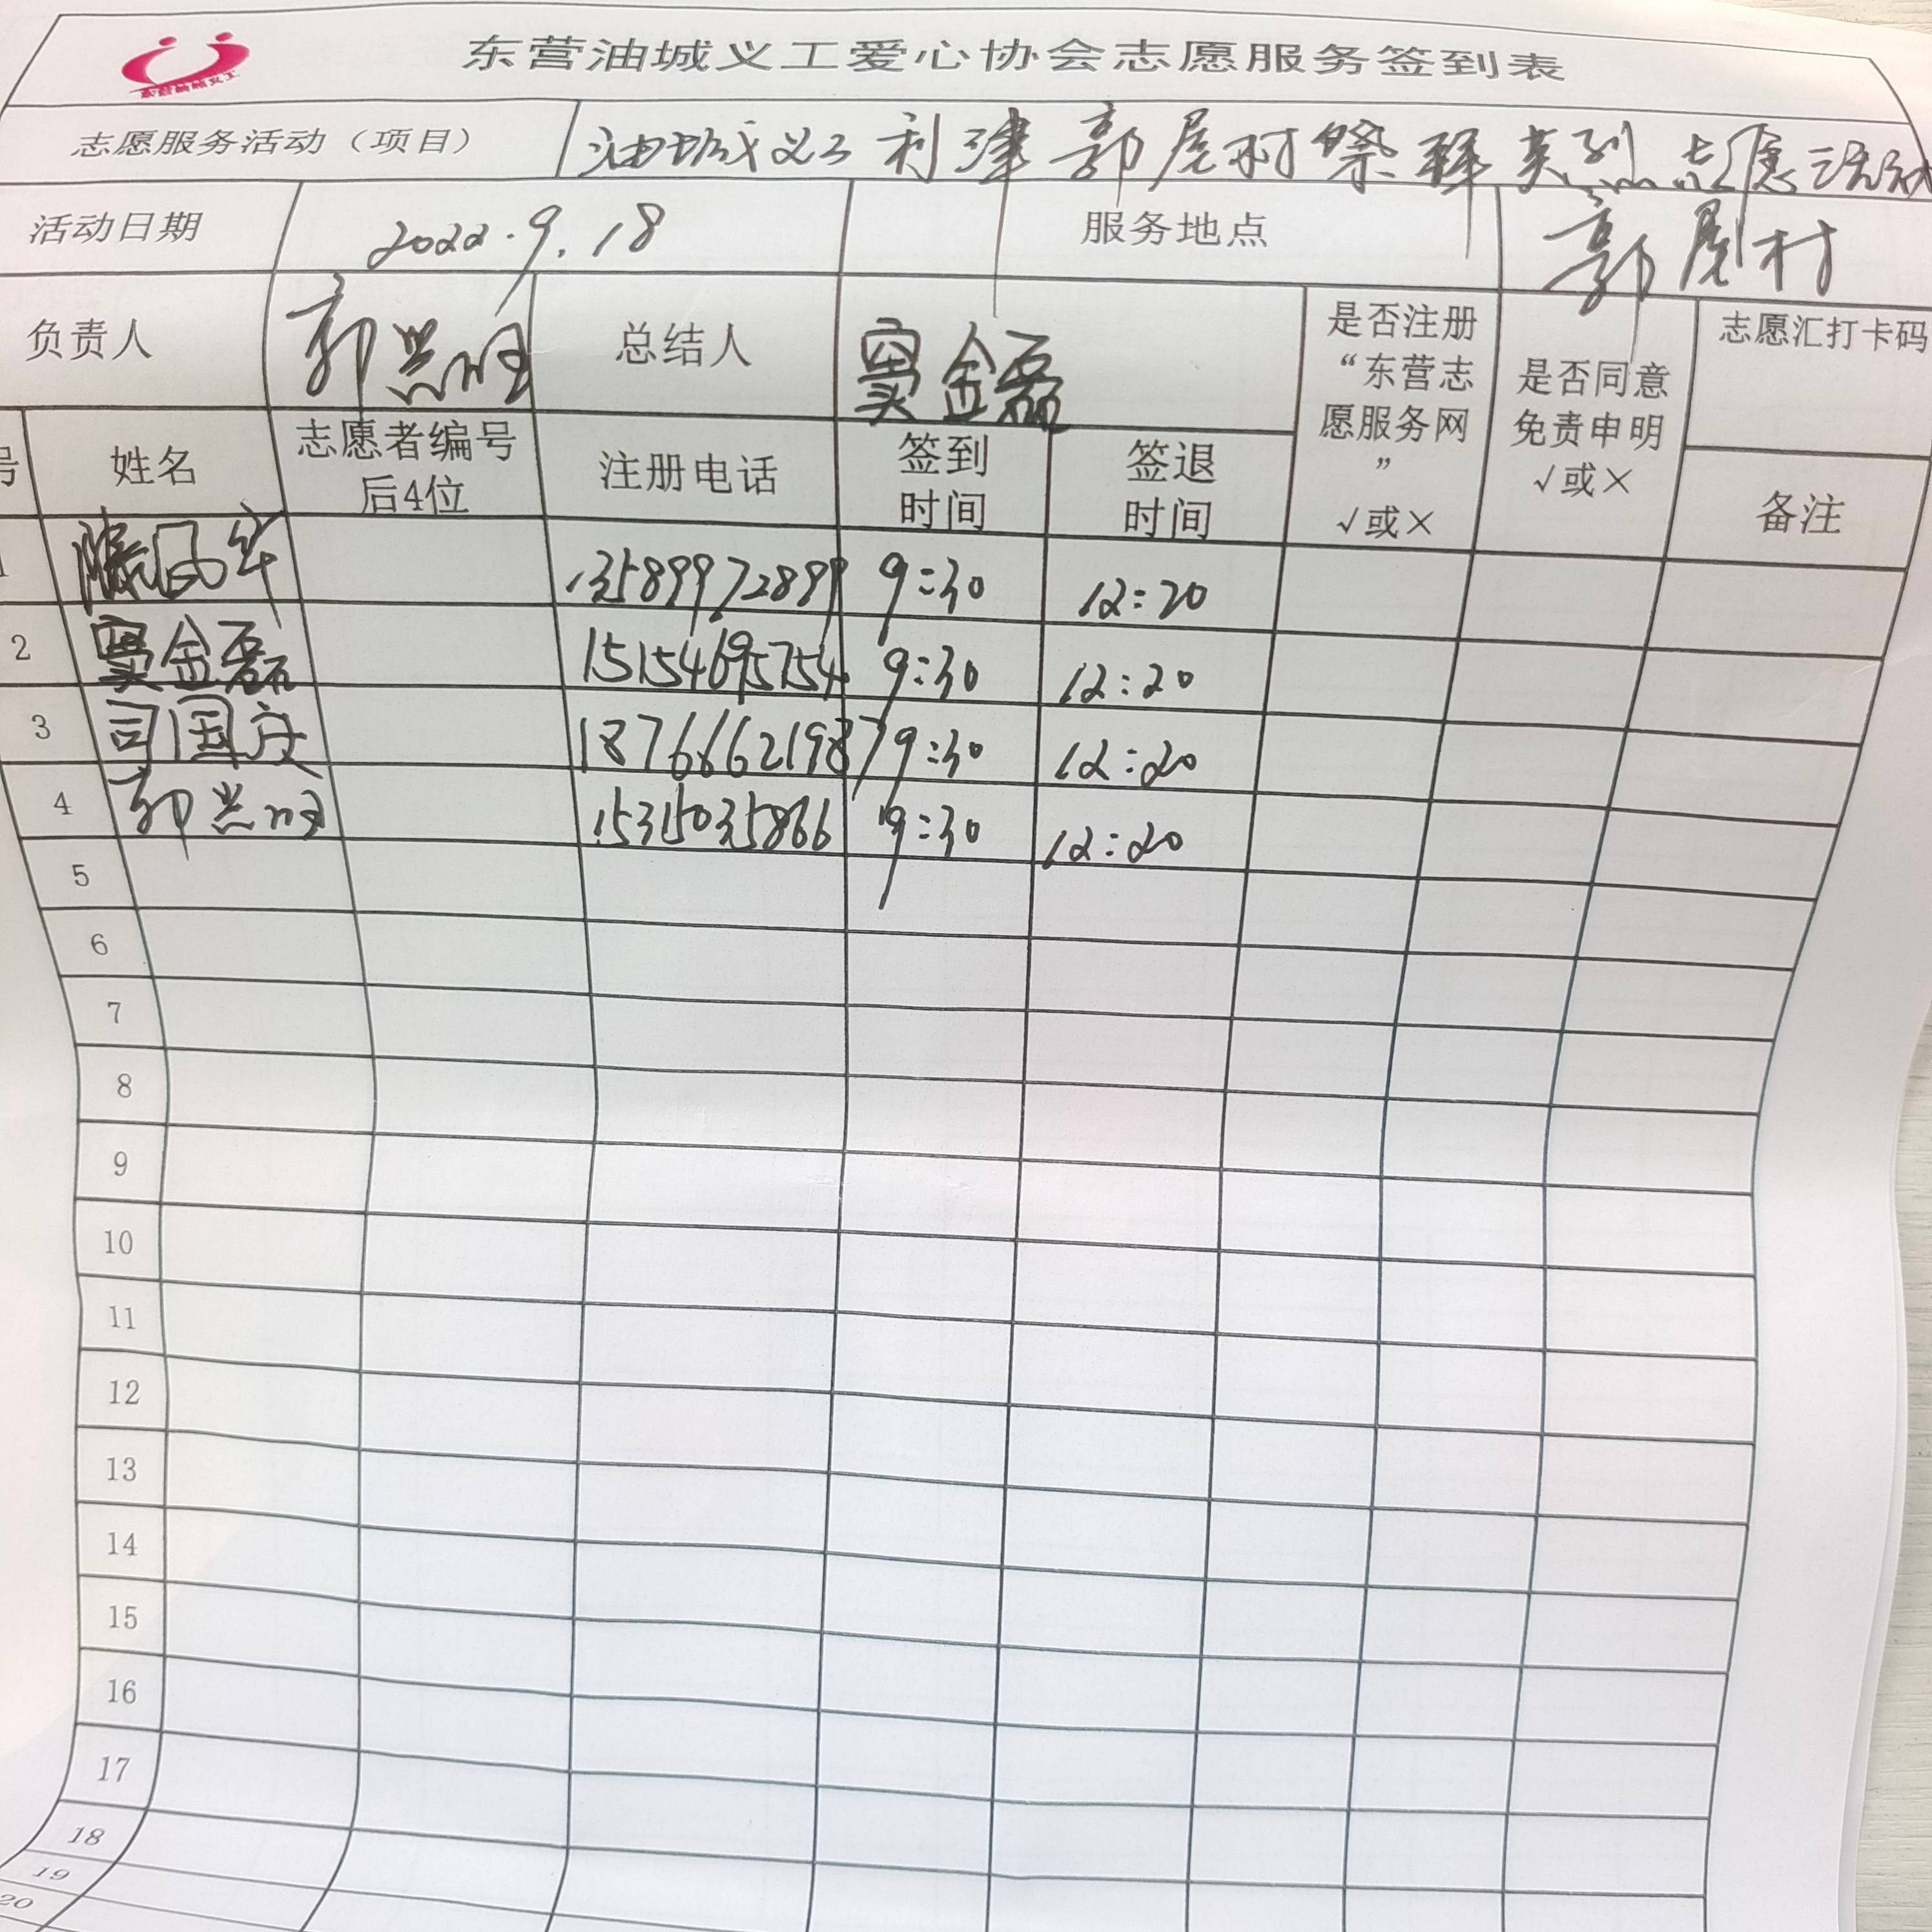 东营油城义工爱心协会志愿服务签到表
志愿服务活动（项目） 油城义工利津郭屋村祭拜英烈志愿活动
活动日期 2022.9.18 服务地点 郭屋村
负责人 郭兴旺 总结人 窦金磊 是否注册“东营志愿服务网” √或× 是否同意免责申明 √或× 志愿汇打卡码
号 姓名 志愿者编号后4位 注册电话 签到时间 签退时间 备注
1 滕风华 13589972899 9:30 12:20
2 窦金磊 15154695754 9:30 12:20
3 司国庆 18766621987 9:30 12:20
4 郭兴旺 15315035866 9:30 12:20
5
6
7
8
9
10
11
12
13
14
15
16
17
18
19
20